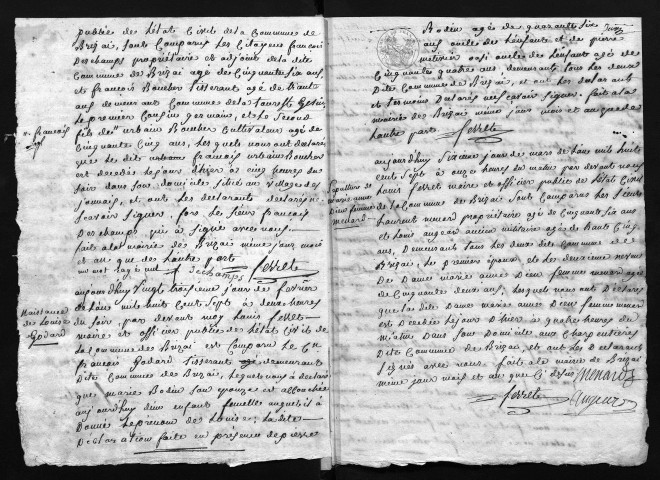 publics de l'état Civil de la Commune de
Brizai, Sont Comparus Les Citoyens françois
Deschamps propriétaire et adjoint de la dite
Commune de Brizai agé de Cinquante Six ans
et françois Boucher Tisserant agé de trante
ans demeurant Commune de la
Le premier Cousin germain, et Le Second
fils de urbain Boucher Cultivateur agé de
Cinquante Cinq ans, Les quels nous ont declaré
que Le dit urbain françois urbain Boucher
est decedé Le jour d'hier à Cinq heures du
Soir dans Son domicile Situé au village des
et ont Les declarants declaré ne
Scavoir Signer, fors Le Sieur francois
Deschamps qui a Signé avec nous
fait a la mairie de Brizai même jour mois
et an que des hautre parts
Deschamps ferret
françois
aujourd'huy Vingt troisieme jours de fevrier
de L'ans mil huit Cent Sept à deux heures
du Soir, par devant moy Louis ferret
maire et officier publics de l'état Civil de
La Commune de Brizai est Comparu Le Cen
françois Godard Tisserant demeurant
Dite Commune de Brizai, Lequel nous a declaré
que marie Bodin Son epouse est accouchée
aujourd'huy d'un enfant femelle auquel il à
Donné Le prenom de Louise; La dite
Declaration faite en presence de pierre
Naissance
de Louise
Godard
Bodin agé de quarante Six
ans oncle de L'enfant et de pierre
metivier aussi oncle de L'enfant agé de
Cinquante quatre ans demeurant tous Les deux
Dite Commune de Brizai, et ont Les declarans
et temoins declarés ne scavoir Signer. fait a la
mairie de Brizai même jour mois et an que de
L'autre part ferret
aujourd'huy Sixieme jour de mars de L'ans mil huit
Cent Sept à onze heures du matin par devant nous
Louis ferret maire et officier public de l'état Civil
de La Commune de Brizai Sont Comparus Les Sieurs
Laurent menard propriétaire agé de Cinquante Six ans
et Louis augeard ancien militaire agé de
ans, Demeurants tous Les deux dite Commune de
Brizai, Le premier Epoux et Le deuxieme neveu
de Dame marie anne Dieu femme menard agé
de Cinquante deux ans, Lesquels nous ont Declarés
que La dite Dame marie anne Dieu femme menard
est Decedée Le jour D'hier à quatre heures du
matin Dans Son Domicile aux Charpentieres
Dite Commune de Brizai, et ont Les Declarants
Signés avec nous. fait a la mairie de Brizai
même jour mois et an que Ci dessus Menard
ferret
Sepulture de
marie anne
Dieu femme
menard